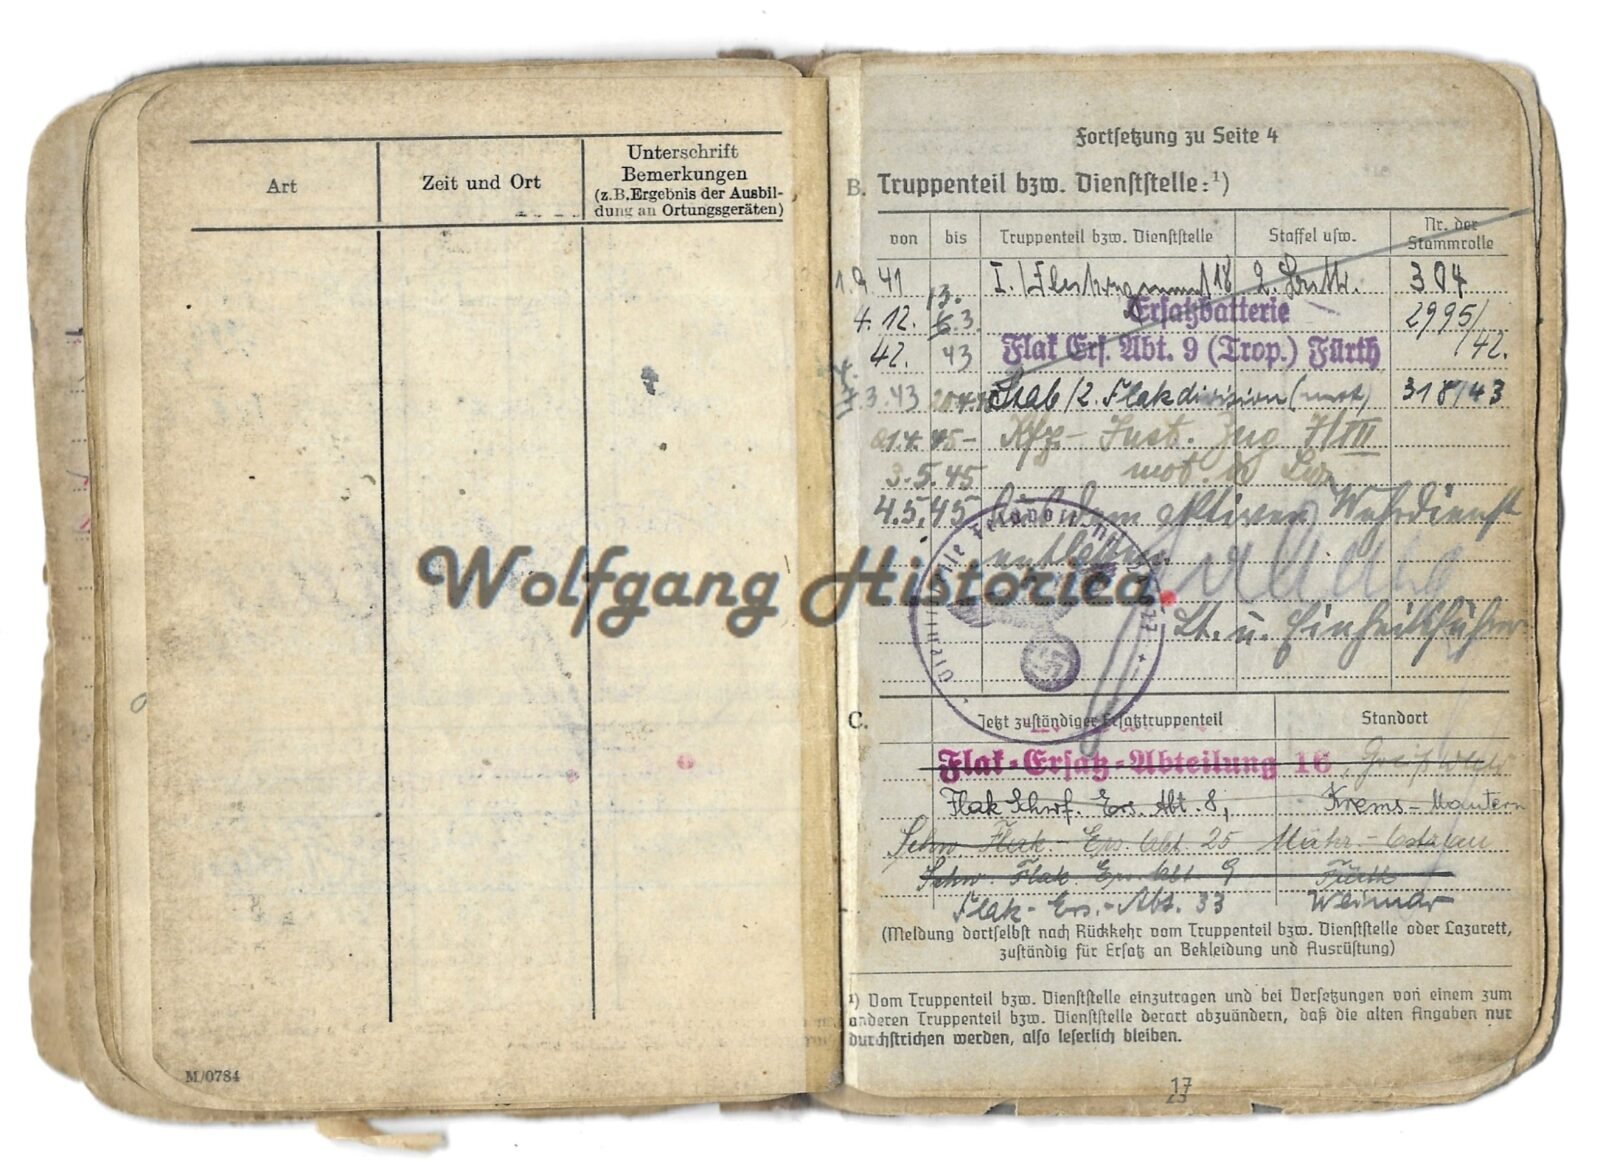 Art
Zeit und Ort
Unterschrift
Bemerkungen
(z.B. Ergebnis der Ausbil-
dung an Ortungsgeräten)
M/0784
Fortsetzung zu Seite 4
B. Truppenteil bzw. Dienststelle:¹)
von bis Truppenteil bzw. Dienststelle Staffel usw. Nr. der Stammrolle
1.9.41 I./ 18 2. 304
4.12. 13. Ersatzbatterie 2995/
42. 6.3. 43 Flak Ers. Abt. 9 (Trop.) Fürth /42.
3.43 Stab/2. Flakdivision (mot) 318/43
1.4.45- Kfz- Inst. Zug 7/III
3.5.45 mot. d Lw
4.5.45 aus dem aktiven Wehrdienst
entlassen
Wolfgang Historica.
Lt. u. Einheitsführer
C. Jetzt zuständiger Ersatztruppenteil Standort
Flak-Ersatz-Abteilung 16, Greifswald
Flak Schrf. Ers. Abt. 8, Krems-Mautern
Schw Flak-Ers. Abt 25 Mähr-Ostrau
Schw. Flak Ers. Abt 9 Fürth
Flak-Ers.-Abt. 33 Weimar
(Meldung dortselbst nach Rückkehr vom Truppenteil bzw. Dienststelle oder Lazarett,
zuständig für Ersatz an Bekleidung und Ausrüstung)
¹) Vom Truppenteil bzw. Dienststelle einzutragen und bei Versetzungen von einem zum
anderen Truppenteil bzw. Dienststelle derart abzuändern, daß die alten Angaben nur
durchstrichen werden, also leserlich bleiben.
17